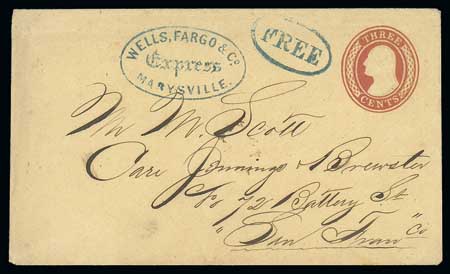 WELLS, FARGO & Co
Express
MARYSVILLE.
FREE
THREE
CENTS
Mr M. Scott
Care Jennings & Brewster
No 72 Battery St
"San Fran" Co